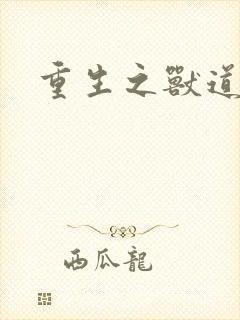 重生之獸道
西瓜龍